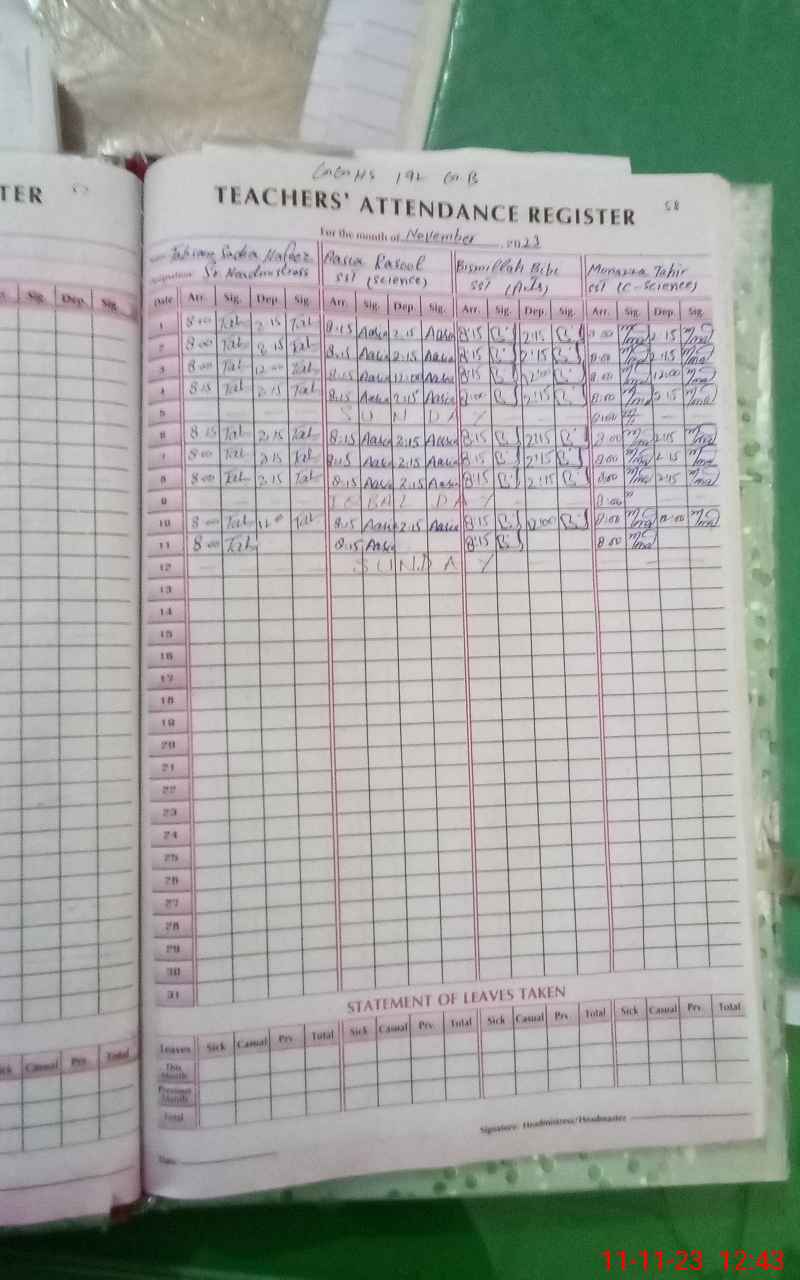 TER
192 G.B
TEACHERS' ATTENDANCE REGISTER 58
For the month of November 2023
Aasia Rasool Bismillah Bibi Munazza Tahir
Sr Headmistress SST (Science) SST (Arts) SST (C-Science)
Sig. Dep. Sig. Date Arr. Sig. Dep. Sig. Arr. Sig. Dep. Sig. Arr. Sig. Dep. Sig. Arr. Sig. Dep. Sig.
1 8:00 Tab 2:15 Tab 8:15 Aasia 2:15 Aasia 8:15 B 2:15 B 8:00 2:15
2 8:00 Tab 2:15 Tab 8:15 Aasia 2:15 Aasia 8:15 B 2:15 B 8:00 2:15
3 8:00 Tab 12:00 Tab 8:15 Aasia 12:00 Aasia 8:15 B 12:00 B 8:00 12:00
4 8:15 Tab 2:15 Tab 8:15 Aasia 2:15 Aasia 8:00 B 2:15 B 8:00 2:15
5 SUNDAY
6 8:15 Tab 2:15 Tab 8:15 Aasia 2:15 Aasia 8:15 B 2:15 B 8:00 2:15
7 8:00 Tab 2:15 Tab 8:15 Aasia 2:15 Aasia 8:15 B 2:15 B 8:00 2:15
8 8:00 Tab 2:15 Tab 8:15 Aasia 2:15 Aasia 8:15 B 2:15 B 8:00 2:15
9 IQBAL DAY
10 8:00 Tab Tab 8:15 Aasia 2:15 Aasia 8:15 B 12:00 B 8:00 12:00
11 8:00 Tab 8:15 Aasia 8:15 B 8:00
12 SUNDAY
13
14
15
16
17
18
19
20
21
22
23
24
25
26
27
28
29
30
31
STATEMENT OF LEAVES TAKEN
Sick Casual Prv. Total Leaves Sick Casual Prv. Total Sick Casual Prv. Total Sick Casual Prv. Total Sick Casual Prv. Total
This Month
Previous Month
Total
Signature: Headmistress/Headmaster
Date
11-11-23 12:43